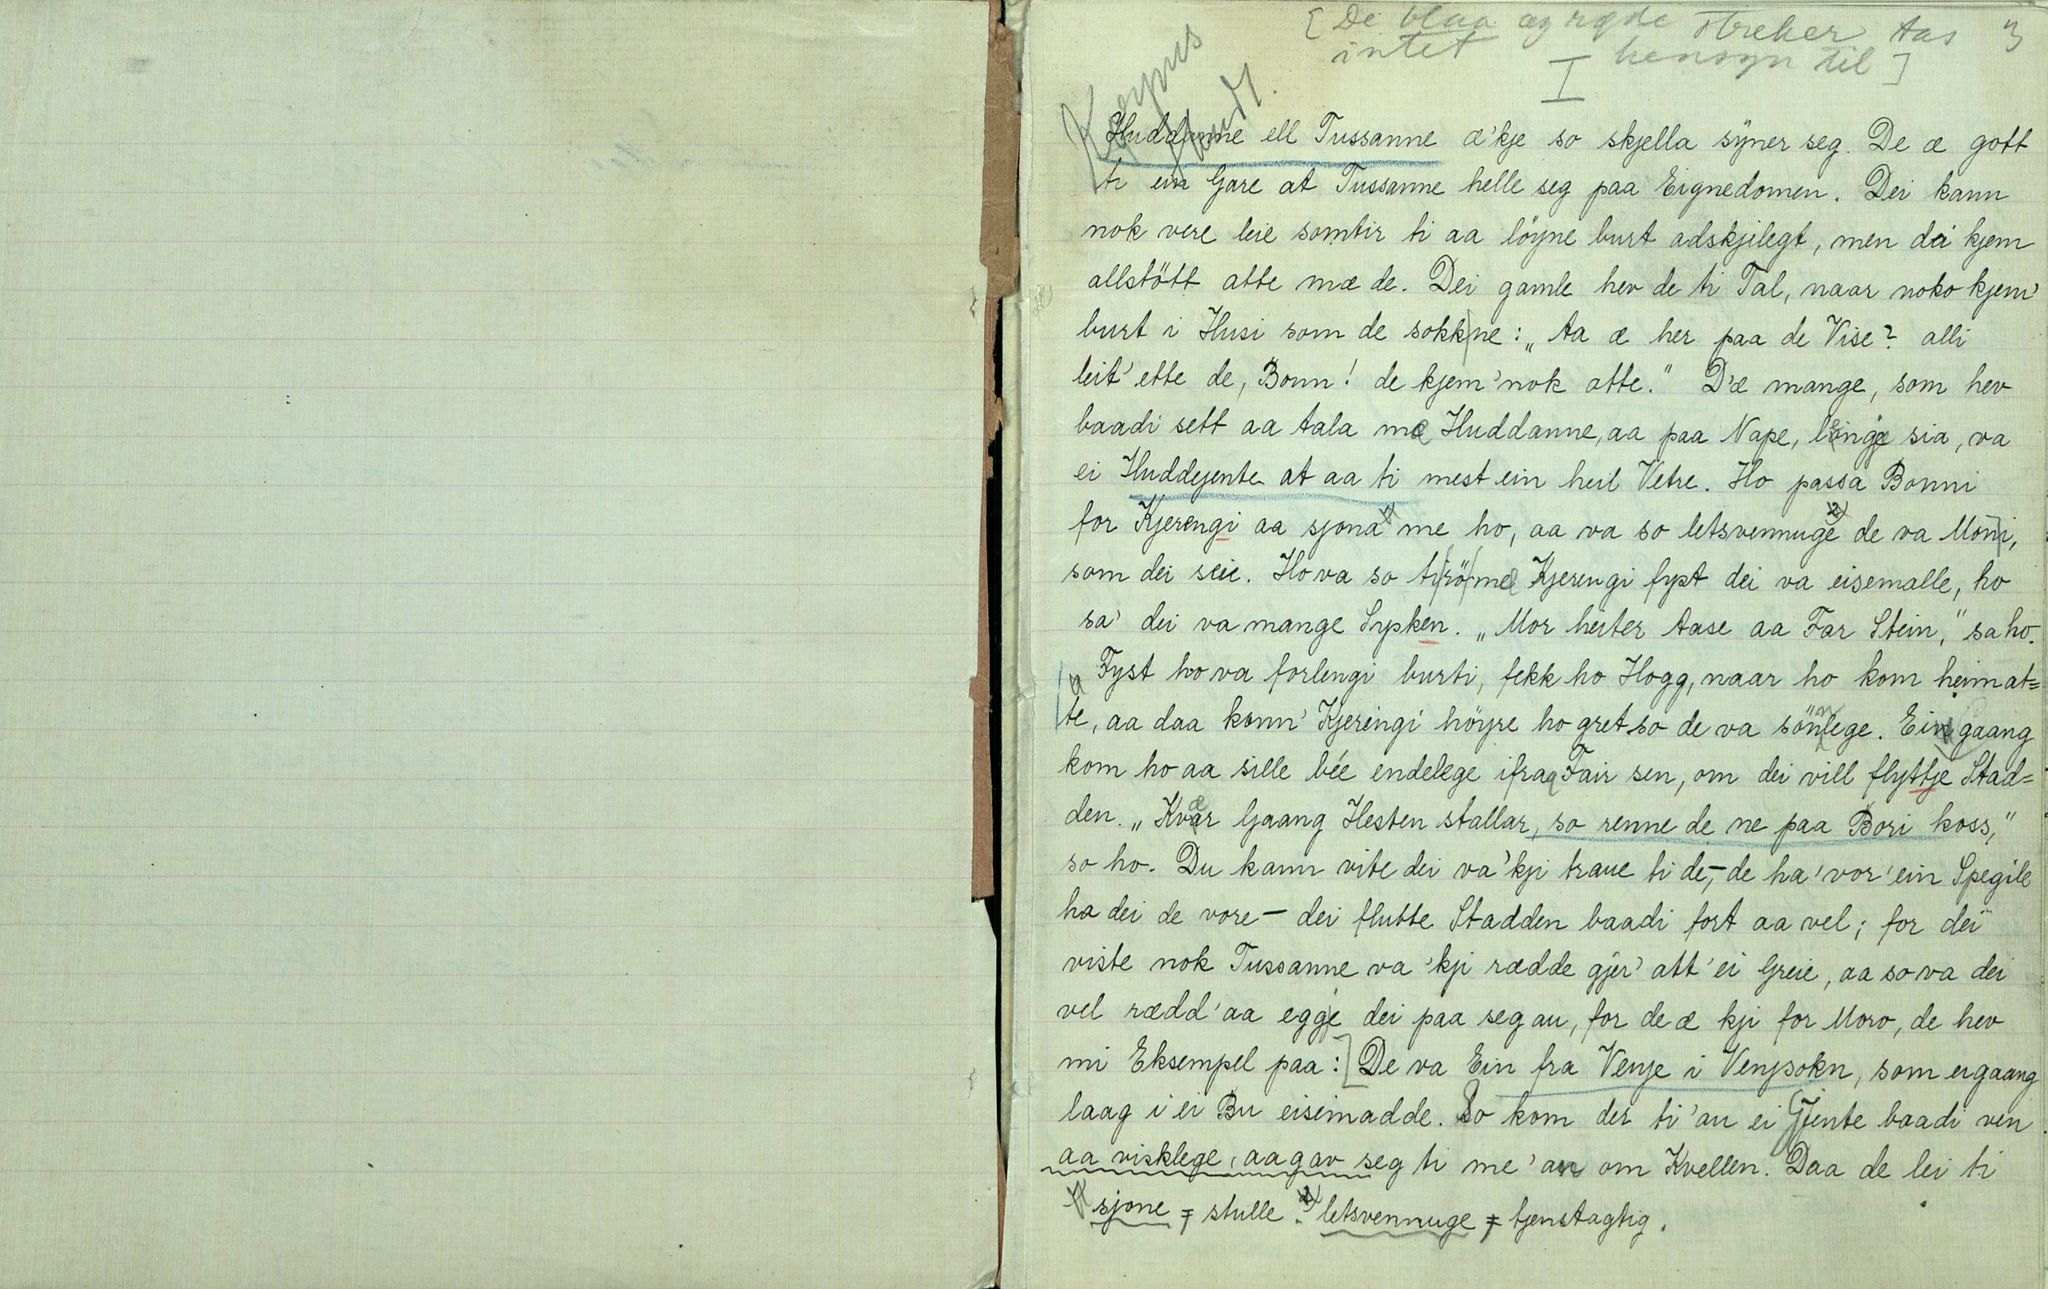 [De blaa og røde streker tas 3
intet hensyn til]
I
Korpus
Huddanne ell Tussanne æ'kje so skjella sÿner seg. De æ gott
ti ein Gare at Tussanne helle seg paa Eignedomen. Dei kann
nok vere leie somtir ti aa löyne burt adskjilegt, men dei kjem
allstött atte mæ de. Dei gamle hev de ti Tal, naar noko kjem'
burt i Husi som de sokkne: „Aa æ her paa de Vise? alli
leit' ette de, Bonn! de kjem' nok atte." D'æ mange, som hev
baadi sett aa tala mæ Huddanne, aa paa Nape, lengje sia, va
ei Huddejente at aa ti mest ein heil Vetre. Ho passa Bonni
for Kjerengi aa sjona 1) me ho, aa va so letsvennuge 2) de va Moni,
som dei seie. Ho va so tirö mæ Kjerengi fyst dei va eisemalle, ho
sa' dei va mange Sysken. „Mor heiter Aase aa Far Stein," sa ho.
Fyst ho va forlengi burti, fekk ho Hogg, naar ho kom heimat=
te, aa daa konn' Kjeringi höyre ho gret so de va sönlege. Ein gaang
kom ho aa sille bée endelege ifraa Fair sen, om dei vill flyttje Stad=
den. „Kvær Gaang Hesten stallar, so renne de ne paa Bori koss,"
so ho. Du kann vite dei va'kji traue ti de, – de ha' vor' ein Spegile
ha dei de vore – dei flutte Stadden baadi fort aa vel; for dei
viste nok Tussanne va'kji rædde gjer' att' ei Greie, aa so va dei
vel rædd' aa eggje dei paa seg au, for de æ kji for Moro, de hev
mi Eksempel paa: [De va Ein fra Venje i Venjsokn, som eigaang
laag i ei Bu eiseimadde. So kom der ti'an ei Gjente baadi ven
aa visklege, aa gav seg ti me'an om Kvellen. Daa de lei ti
1) sjone = stulle. 2) letsvennuge = tjenstagtig.